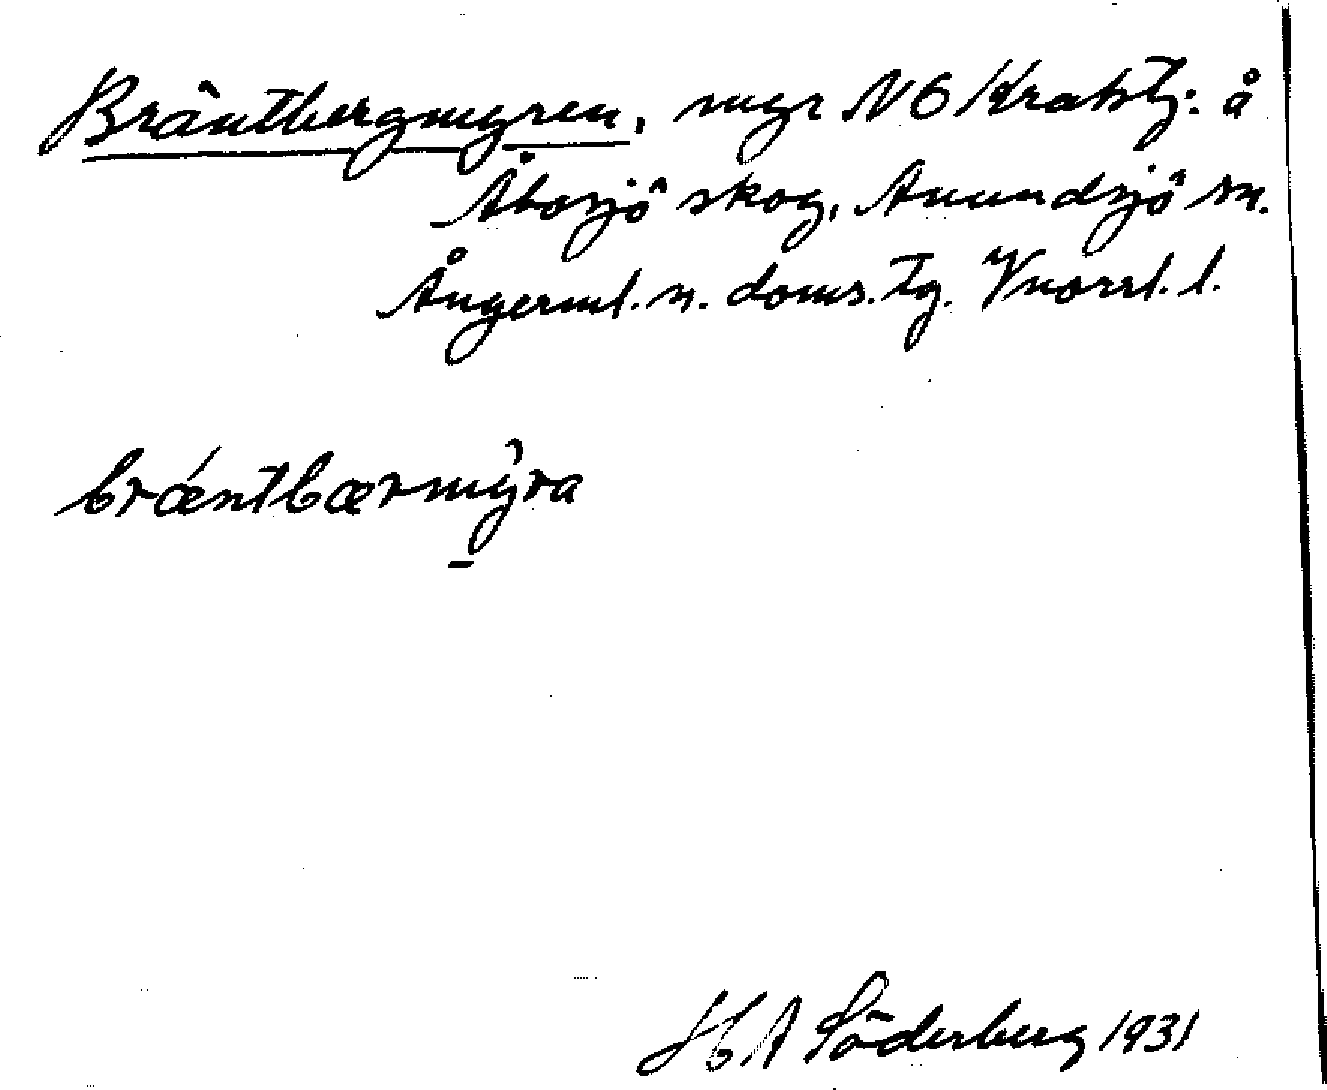 Bräntbergmyren, myr NÖ Kraktj: å
Åbosjö skog, Anundsjö sn.
Ångerml. n. doms. tg. Vnorrl. l.
brǽntbærmy̌ra
H A Söderberg 1931